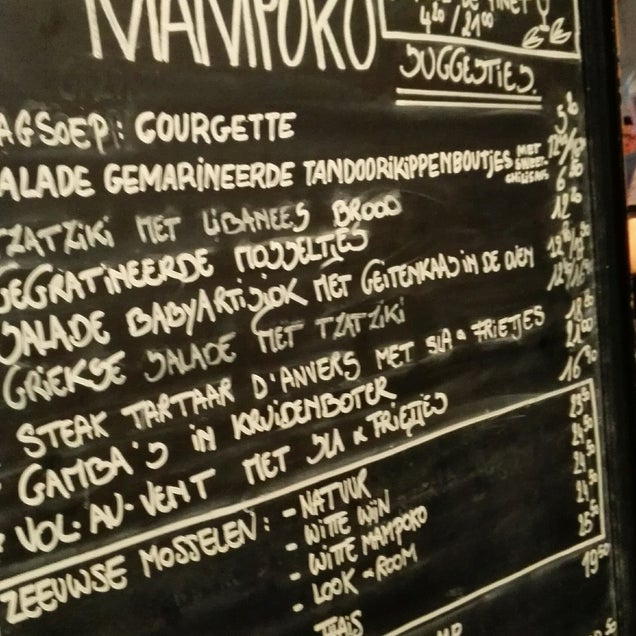 MAMPOKO
4,20 / 21,00
SUGGESTIES
AGSOEP: COURGETTE 5,20
ALADE GEMARINEERDE TANDOORIKIPPENBOUTJES MET SWEET CHILISAUS
TZATZIKI MET LIBANEES BROOD 6,50
GEGRATINEERDE MOSSELTJES
SALADE BABYARTISJOK MET GEITENKAAS IN DE OVEN
GRIEKSE SALADE MET TZATZIKI
STEAK TARTAAR D'ANVERS MET SLA & FRIETJES 18,50
GAMBA'S IN KRUIDENBOTER 21,00
VOL-AU-VENT MET SLA & FRIETJES
ZEEUWSE MOSSELEN: - NATUUR 23,50
- WITTE WIJN 24,50
- WITTE MAMPOKO 24,50
- LOOK & ROOM 25,50
THAIS 19,50